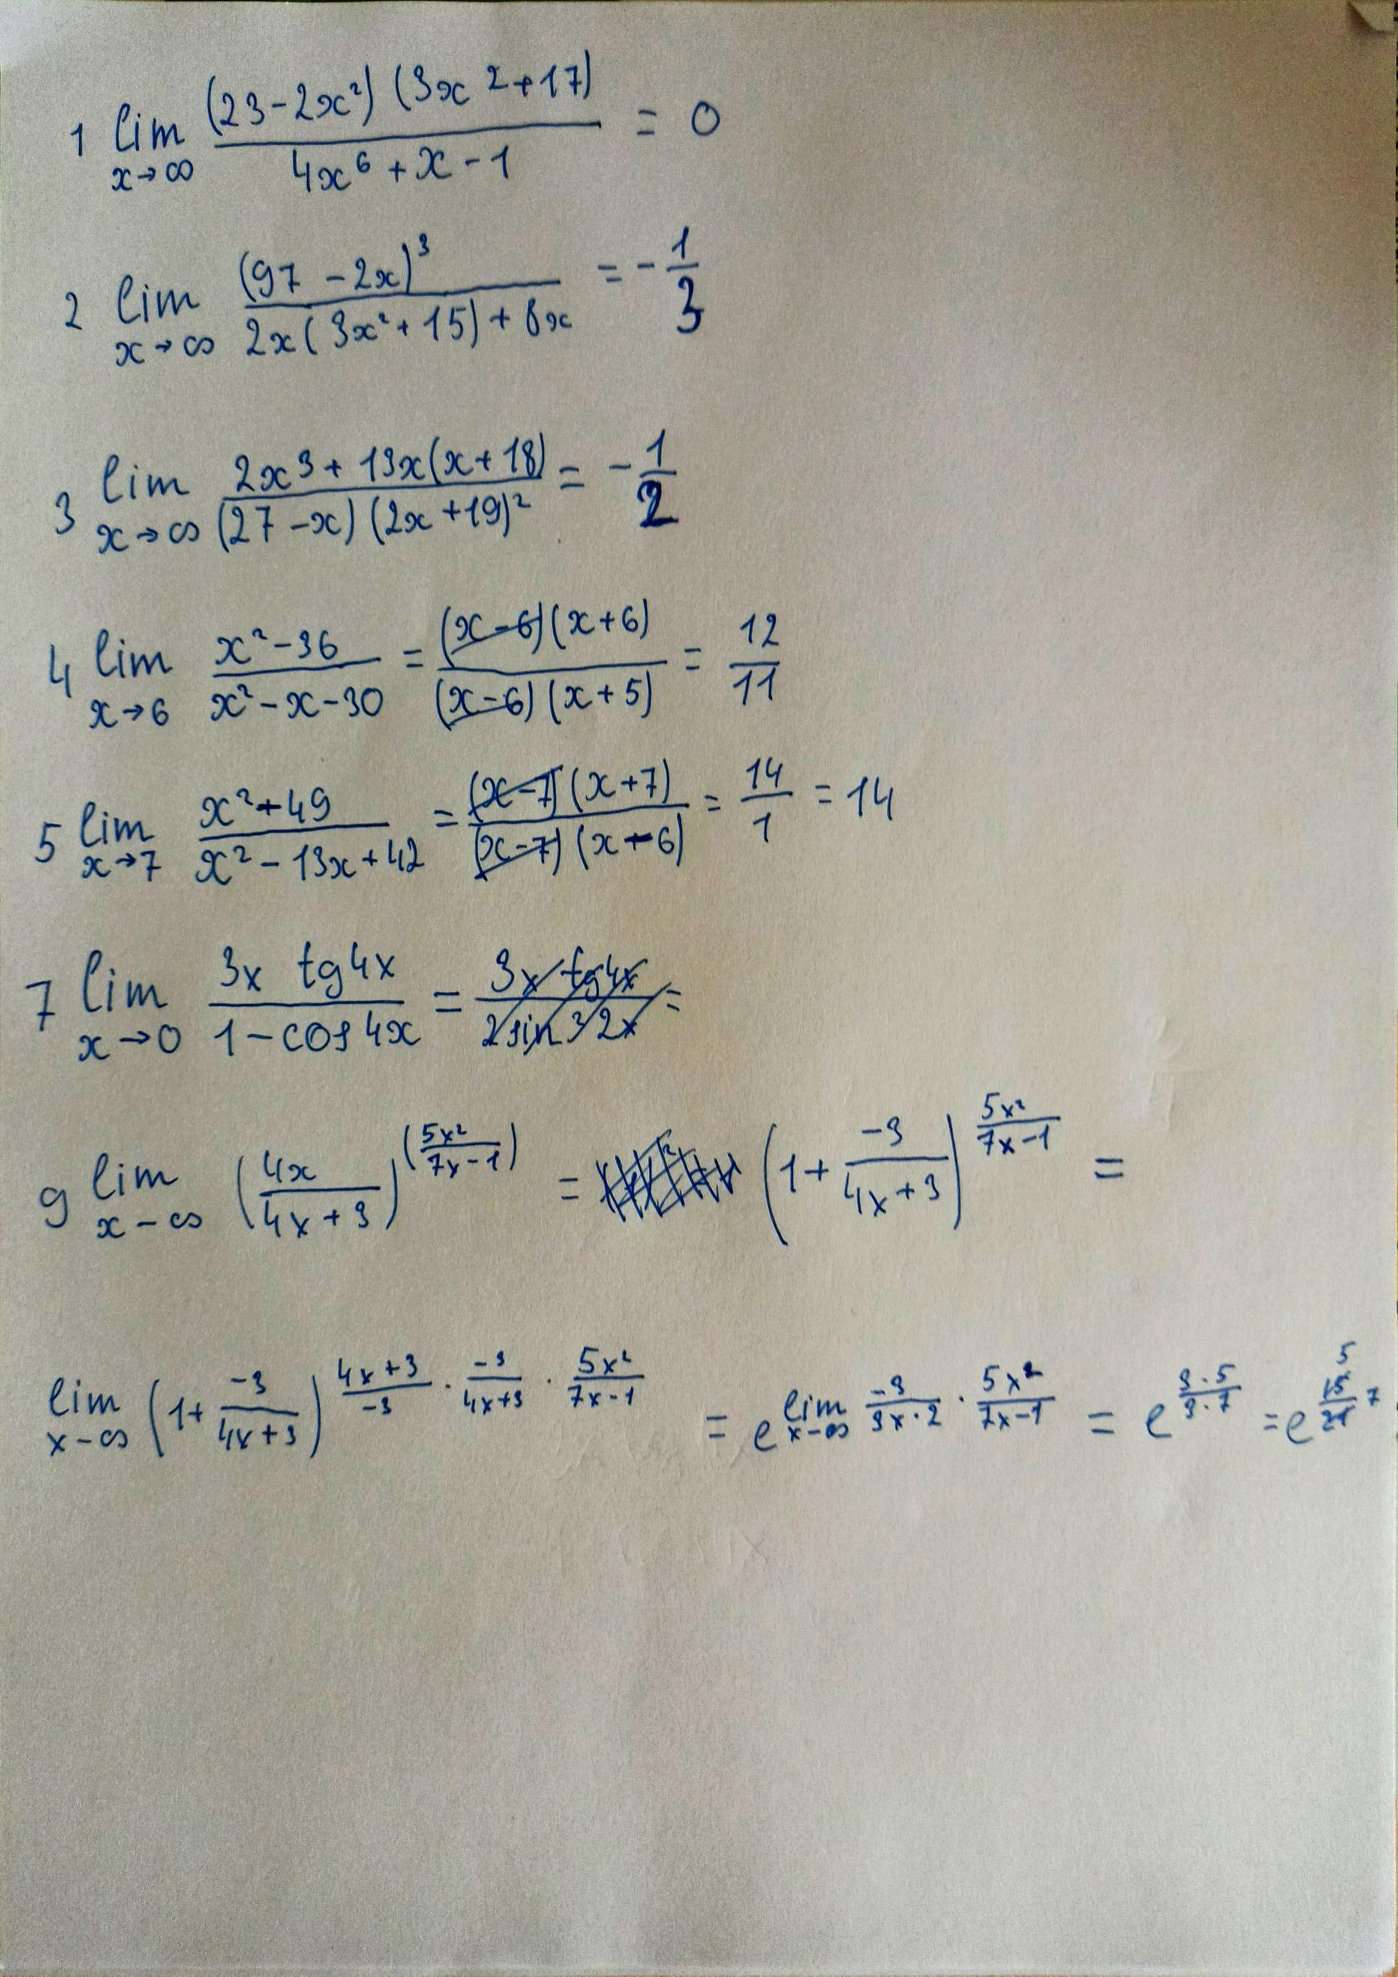 1 lim x→∞ (23-2x²)(3x²+17) / 4x⁶+x-1 = 0
2 lim x→∞ (97-2x)³ / 2x(3x²+15)+8x = -1/3
3 lim x→∞ 2x³+13x(x+18) / (27-x)(2x+19)² = -1/2
4 lim x→6 x²-36 / x²-x-30 = (x-6)(x+6) / (x-6)(x+5) = 12/11
5 lim x→7 x²+49 / x²-13x+42 = (x-7)(x+7) / (x-7)(x-6) = 14/1 = 14
7 lim x→0 3x tg4x / 1-cos4x = 3x tg4x / 2sin³2x =
9 lim x-∞ (4x / 4x+3)^(5x² / 7x-1) = (1+ -3 / 4x+3)^(5x² / 7x-1) =
lim x-∞ (1+ -3 / 4x+3)^(4x+3 / -3 · -3 / 4x+3 · 5x² / 7x-1) = e^(lim x-∞ -3 / 3x·2 · 5x² / 7x-1) = e^(3·5 / 3·7) = e^(15 / 21) 5 7